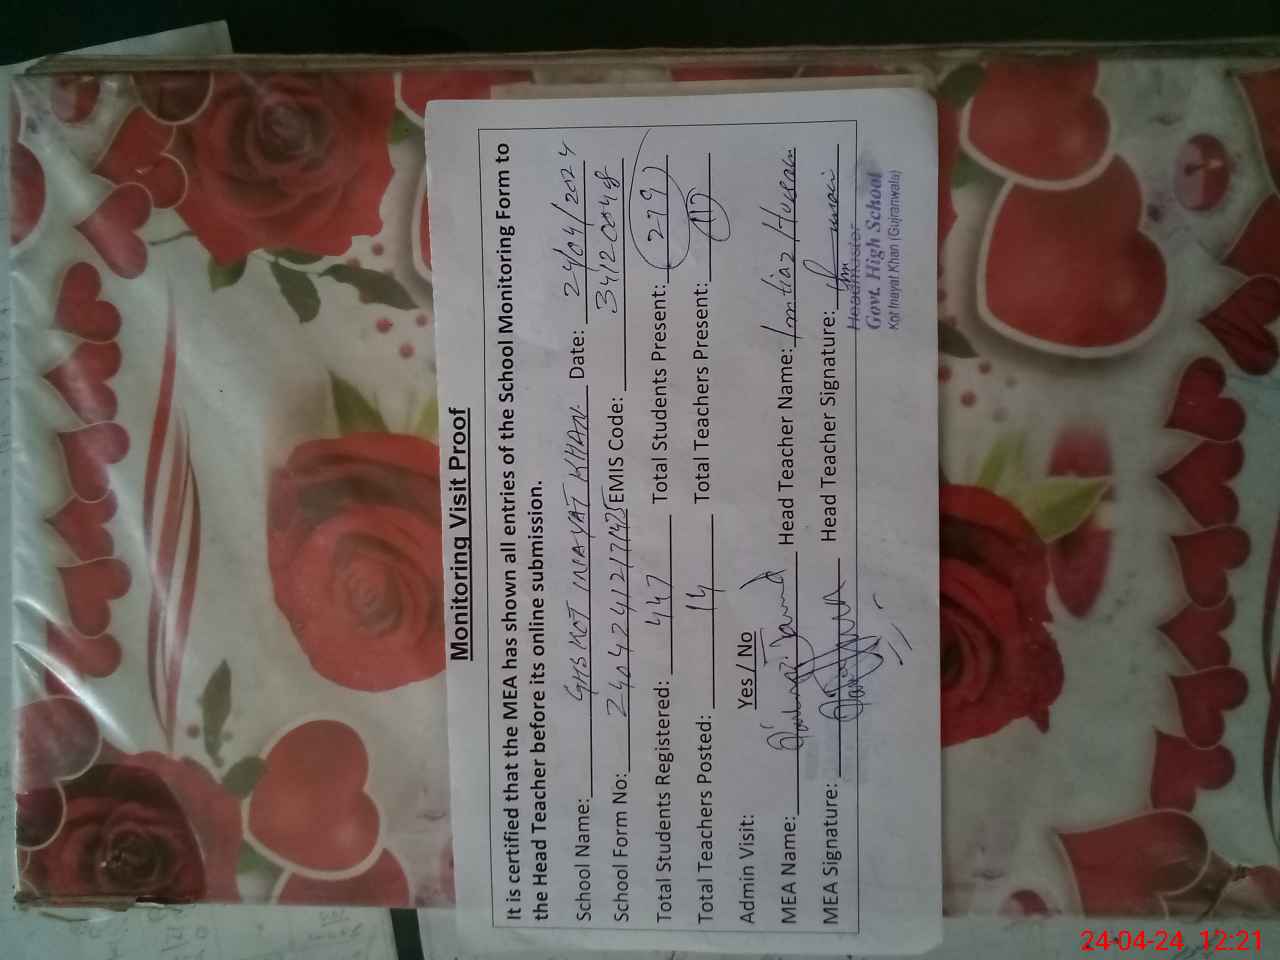 Monitoring Visit Proof
It is certified that the MEA has shown all entries of the School Monitoring Form to
the Head Teacher before its online submission.
School Name: GHS KOT INAYAT KHAN Date: 24/04/2024
School Form No: EMIS Code: 34120048
Total Students Registered: 447 Total Students Present: 279
Total Teachers Posted: 14 Total Teachers Present:
Admin Visit: Yes / No
MEA Name: Head Teacher Name: Imtiaz Hussain
MEA Signature: Head Teacher Signature:
Headmaster
Govt. High School
Kot Inayat Khan (Gujranwala)
24-04-24 12:21